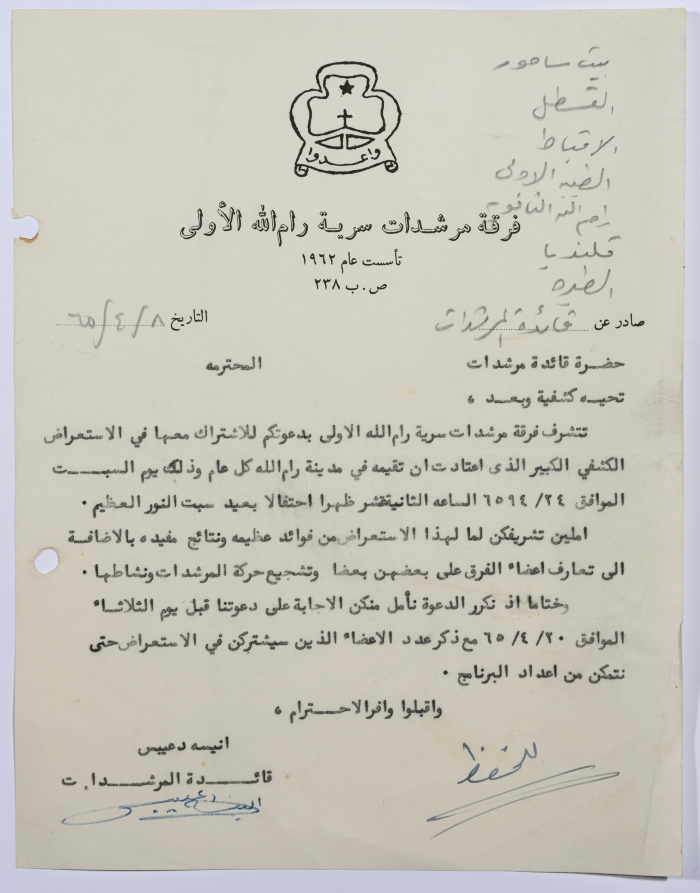 بيت ساحور
القسطل
الاقباط
الطيبه الاولى
رام الله الثانوية
قلنديا
الطيره
واعدوا
فرقة مرشدات سرية رام الله الأولى
تأسست عام ١٩٦٢
ص.ب ٢٣٨
صادر عن قائدة المرشدات التاريخ ٨/٤/٦٥
حضرة قائدة مرشدات المحترمه
تحيه كشفية وبعد ،
تتشرف فرقة مرشدات سرية رام الله الاولى بدعوتكم للاشتراك معها في الاستعراض
الكشفي الكبير الذى اعتادت ان تقيمه في مدينة رام الله كل عام وذلك يوم السبت
الموافق ٢٤/ ٦٥٩٤ الساعه الثانيةعشر ظهرا احتفالا بعيد سبت النور العظيم .
املين تشريفكن لما لهذا الاستعراض من فوائد عظيمه ونتائج مفيده بالاضافة
الى تعارف اعضاء الفرق على بعضهن بعضا وتشجيع حركة المرشدات ونشاطها .
وختاما اذ نكرر الدعوة نأمل منكن الاجابة على دعوتنا قبل يوم الثلاثاء
الموافق ٢٠/ ٤/ ٦٥ مع ذكر عدد الاعضاء الذين سيشتركن في الاستعراض حتى
نتمكن من اعداد البرنامج .
واقبلوا وافر الاحترام ،
انيسه دعيبس
قائدة المرشدات
للحفظ